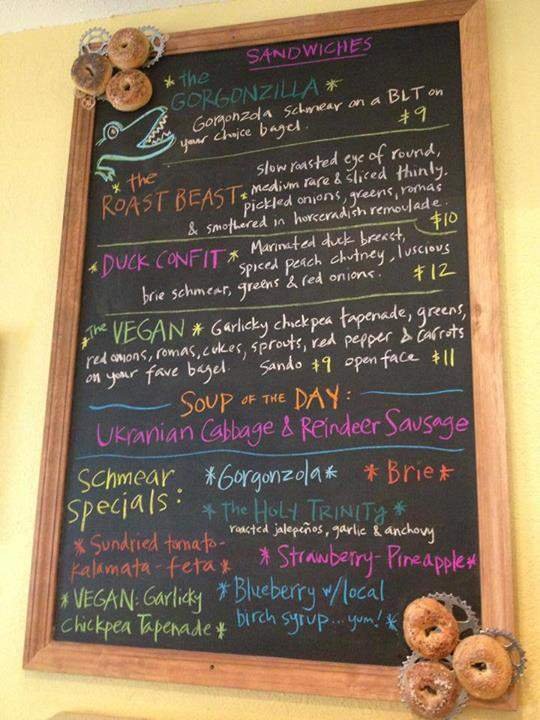 SANDWICHES
* the
GORGONZILLA *
Gorgonzola Schmear on a BLT on
your choice bagel. $9
* the
ROAST BEAST *
slow roasted eye of round,
medium rare & sliced thinly.
pickled onions, greens, romas
& smothered in horseradish remoulade. $10
* DUCK CONFIT * Marinated duck breast,
spiced peach chutney, luscious
brie schmear, greens & red onions. $12
* The VEGAN * Garlicky chickpea tapenade, greens,
red onions, romas, cukes, sprouts, red pepper & carrots
on your fave bagel. Sando $9 open face $11
SOUP OF THE DAY:
Ukranian Cabbage & Reindeer Sausage
Schmear
Specials:
* Gorgonzola * * Brie *
* The HOLY TRINITY *
roasted jalepeños, garlic & anchovy
* Sundried tomato-
Kalamata - feta *
* Strawberry-Pineapple *
* VEGAN: Garlicky
Chickpea Tapenade *
* Blueberry w/local
birch syrup... yum! *